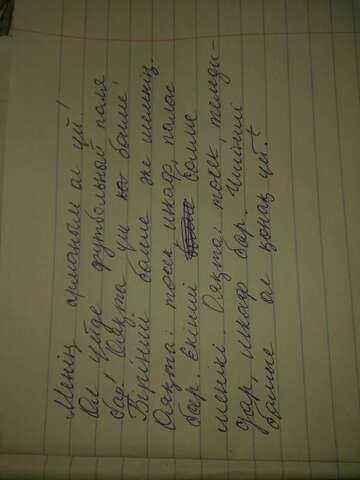 Менің арманым ол үй!
Ол үйде футбольный поля
бар! Оляқта үш ко бөлме!
Бірінші бөлме же шешемнің.
Оляқта: төсек, шкаф, палас
бар. Екінші бөлме
менікі. Оляқта: төсек, темди-
дар, шкаф бар. Үшінші
бөлме ол қонақ үй.